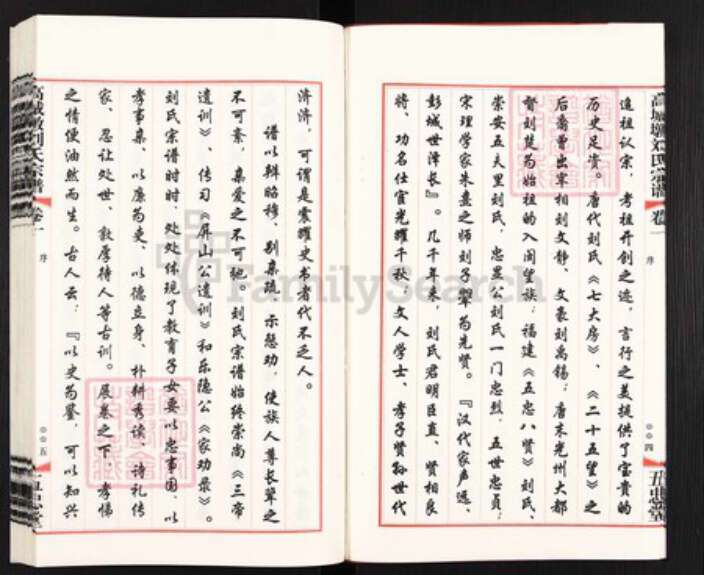 高城墩刘氏宗谱
卷一
序
〇〇四
五忠堂
追祖认宗，考祖开创之迹，言行之美提供了宝贵的
历史足资。唐代刘氏《七大房》、《二十五望》之
后裔曾出宰相刘文静、文豪刘禹锡；唐末光州大都
督刘楚为始祖的入闽望族；福建《五忠八贤》刘氏、
崇安五夫里刘氏，忠显公刘氏一门忠烈，五世忠贞；
宋理学家朱熹之师刘子翚为先贤。『汉代家声远，
彭城世泽长』。几千年来，刘氏君明臣直、贤相良
将、功名仕宦光耀千秋，文人学士、孝子贤孙世代
济济，可谓是荣耀史书者代不乏人。
谱以辩昭穆、别亲疏、示惩劝，使族人尊长辈之
不可紊，亲爱之不可弛。刘氏宗谱始终崇尚《三帝
遗训》、传习《屏山公遗训》和乐隐公《家劝录》。
刘氏宗谱时时、处处体现了教育子女要以忠事国、以
孝事亲、以廉为吏、以德立身、朴耕秀读、诗礼传
家、忍让处世、敦厚待人等古训。展卷之下，孝悌
之情便油然而生。古人云：『以史为鉴，可以知兴
高城墩刘氏宗谱
卷一
序
〇〇五
五忠堂
FamilySearch